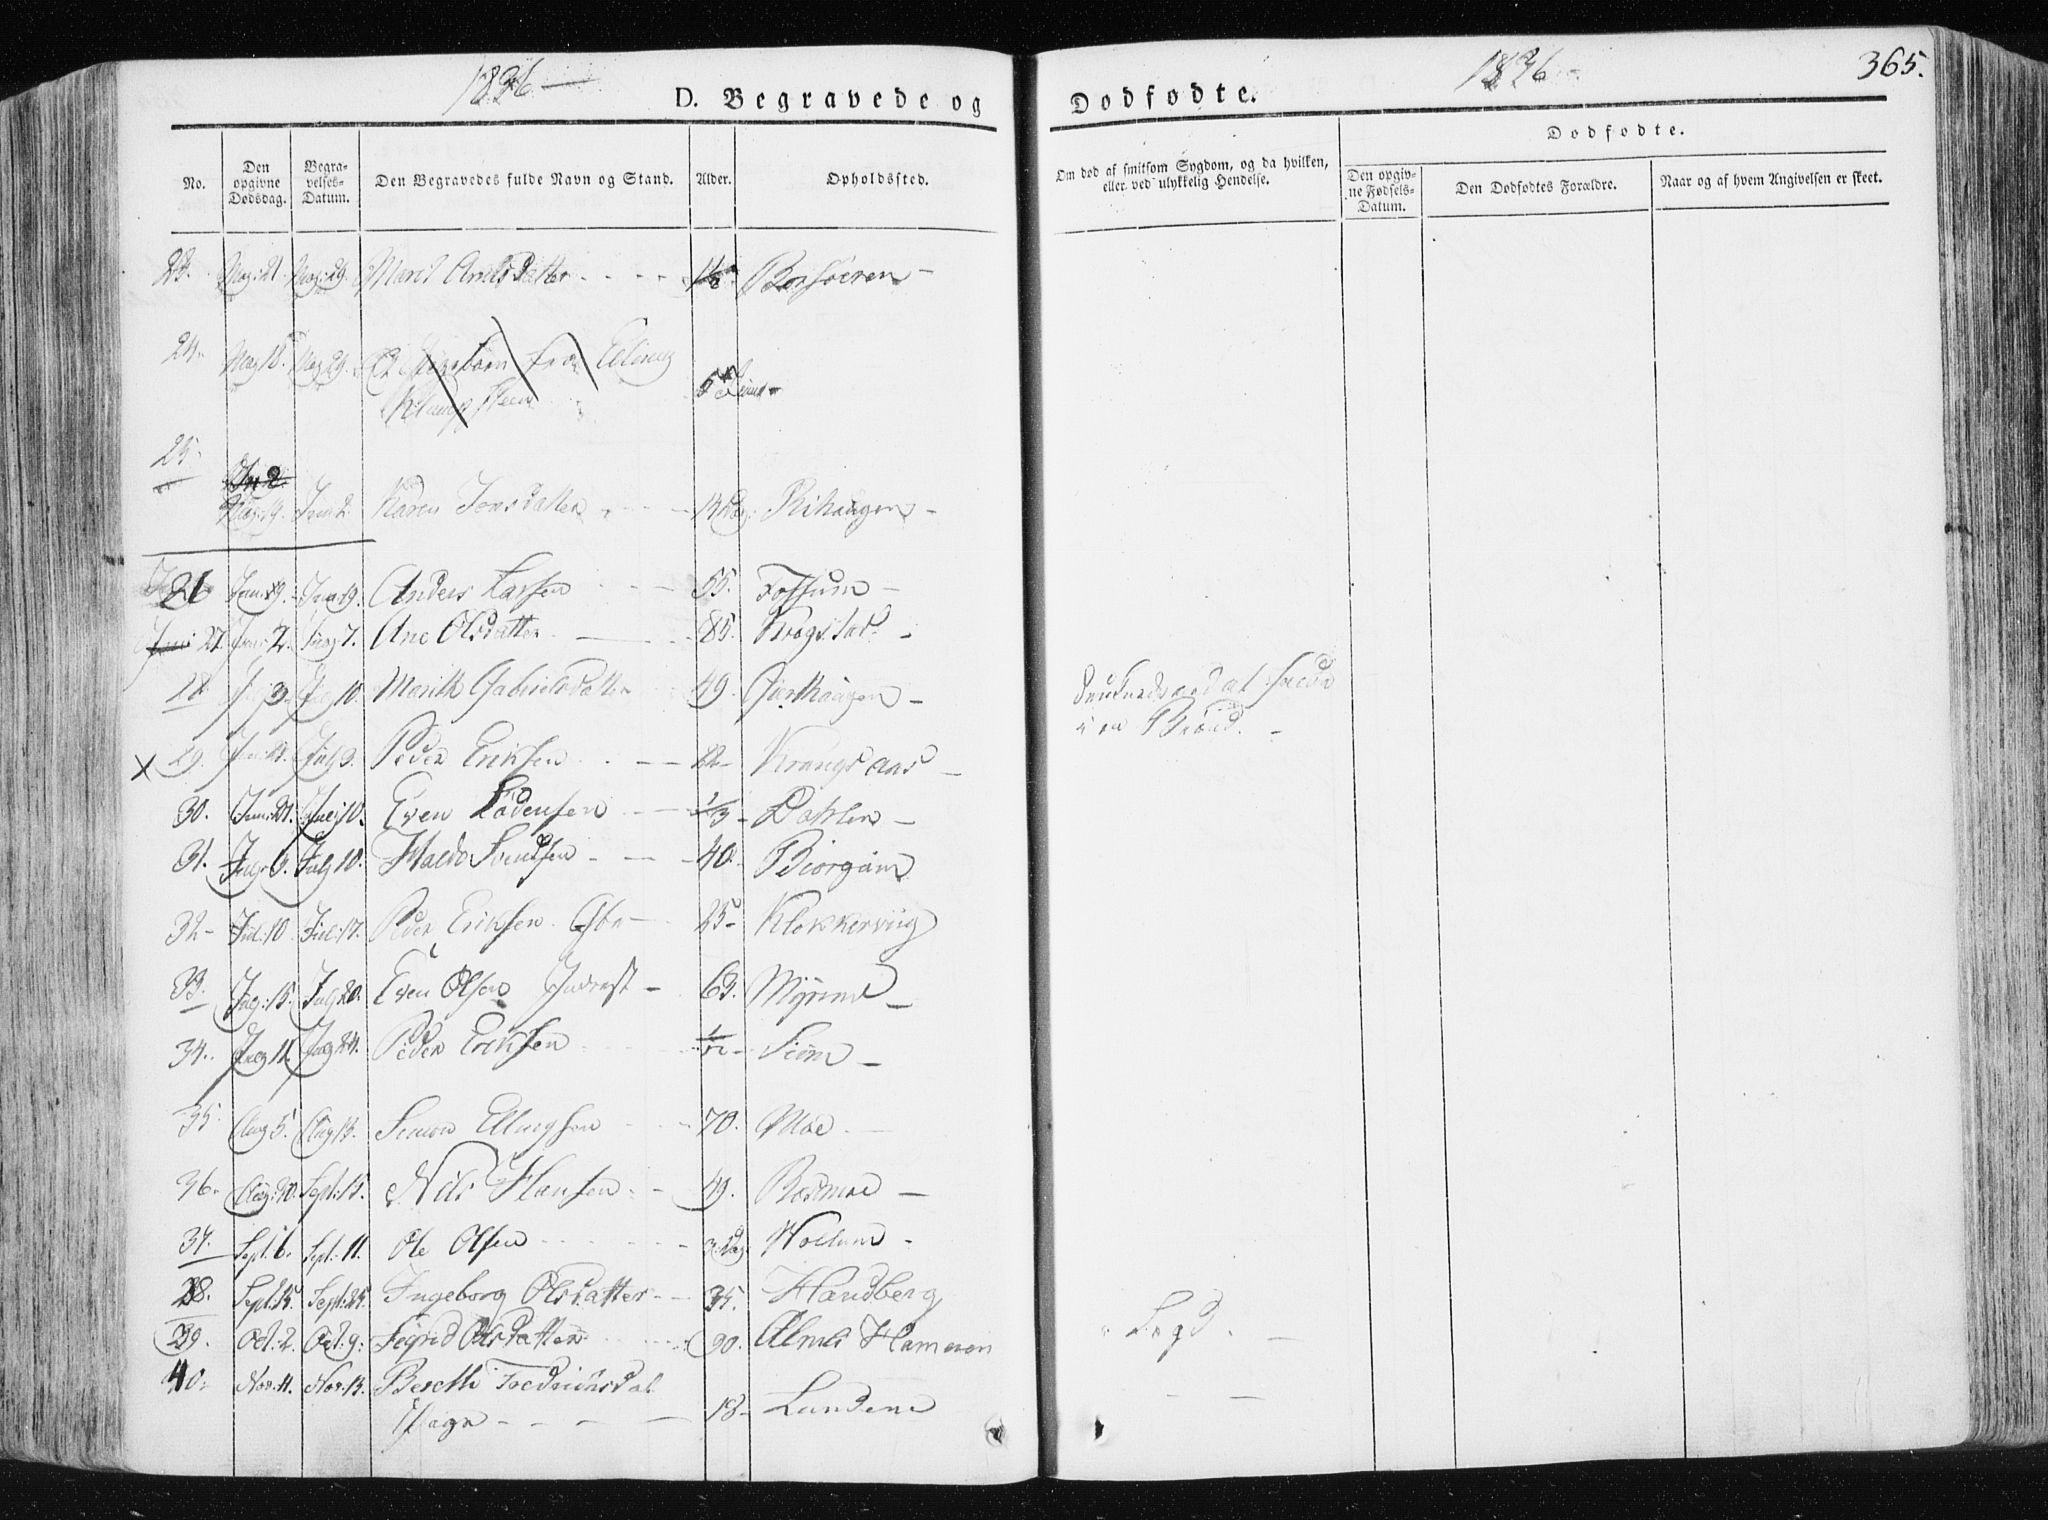 1836 —
D. Begravede og
Dødfødte.
1836 -
365.
No.
Den opgivne Dødsdag.
Begravelses-Datum.
Den Begravedes fulde Navn og Stand.
Alder.
Opholdssted.
Om død af smitsom Sygdom, og da hvilken, eller ved ulykkelig Hendelse.
Dødfødte.
Den opgivne Fødsels-Datum.
Den Dødfødtes Forældre.
Naar og af hvem Angivelsen er skeet.
23. May: 21. May: 29. Marit Arntsdatter 1½ Borsøeren -
24. May 18. May 29. Et Pigebarn fra Elling
25.
May: 19. Juni 2. Karen Jonsdatter 14 Dag: Rihaugen -
26 Juni 19. Anders Larsen 55. Fossum -
27. Juni 2. Ane Olsdatter 85. Krogstad -
28 Juli 10. Marith Gabrielsdatter 49. Gjerthaugen -
i en Brønd. -
x 29. July 3. Peder Eriksen 22 - Krangsaas -
30. Juni: 21. Juli 10. Even Lodensen 1/3 - Dahlen -
31. July 10. Haldo Svendsen 40. Biørgum
32 - Jul: 10 Jul: 17. Peder Eriksen 25 - Klokkerviig
33. July: 15. July 20. Even Olsen Inderst - 63. Myrene -
34. July 11. July 24. Peder Eriksen Siem -
35. Aug 5. Aug 13. Simon Ellingsen 70. Moe -
36. Aug: 30. Sept: 15. Nils Hansen 49. Rosmoe -
37. Sept: 6. Sept: 11. Ole Olsen 3 Dag: Wollum -
38. Sept: 15. Sept: 25. Ingeborg Olsdatter 35. Handberg
39. Oct: 2. Oct. 9: Sigrid Olsdatter 90. Almli Hameren
Legd. -
40. Nov: 11. Nov: 13. Bereth
Pige 18 - Lundene